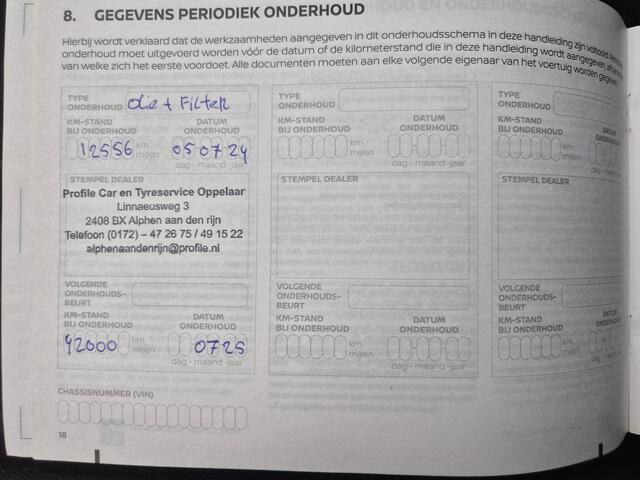 8. GEGEVENS PERIODIEK ONDERHOUD
Hierbij wordt verklaard dat de werkzaamheden aangegeven in dit onderhoudsschema in deze handleiding zijn voltooid.
onderhoud moet uitgevoerd worden vóór de datum of de kilometerstand die in deze handleiding wordt aangegeven,
van welke zich het eerste voordoet. Alle documenten moeten aan elke volgende eigenaar van het voertuig worden gegeven.
TYPE ONDERHOUD Olie + Filter
KM-STAND BIJ ONDERHOUD
DATUM ONDERHOUD
12556 km mijlen
05 07 24
dag - maand -jaar
STEMPEL DEALER
Profile Car en Tyreservice Oppelaar
Linnaeusweg 3
2408 BX Alphen aan den rijn
Telefoon (0172) – 47 26 75 / 49 15 22
alphenaandenrijn@profile.nl
VOLGENDE ONDERHOUDS-BEURT
KM-STAND BIJ ONDERHOUD
DATUM ONDERHOUD
42000 km mijlen
07 25
dag - maand -jaar
CHASSISNUMMER (VIN)
18
TYPE ONDERHOUD
KM-STAND BIJ ONDERHOUD
DATUM ONDERHOUD
km mijlen
dag - maand -jaar
STEMPEL DEALER
VOLGENDE ONDERHOUDS-BEURT
KM-STAND BIJ ONDERHOUD
DATUM ONDERHOUD
km mijlen
dag - maand -jaar
TYPE ONDERHOUD
KM-STAND BIJ ONDERHOUD
STEMPEL DEALER
VOLGENDE ONDERHOUDS-BEURT
KM-STAND BIJ ONDERHOUD